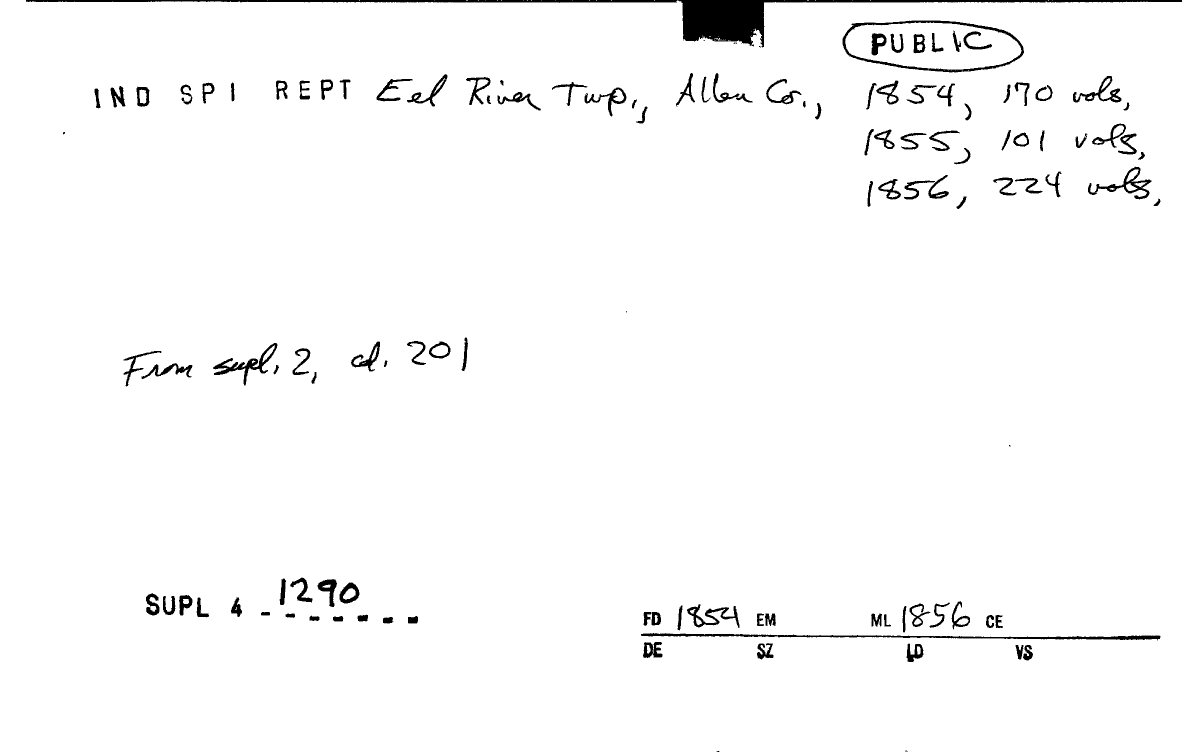 PUBLIC
IND SPI REPT Eel River Twp., Allen Co., 1854, 170 vols,
1855, 101 vols,
1856, 224 vols,
From supl. 2, cd. 201
SUPL 4 - 1290
FD 1854 EM ML 1856 CE
DE SZ LD VS